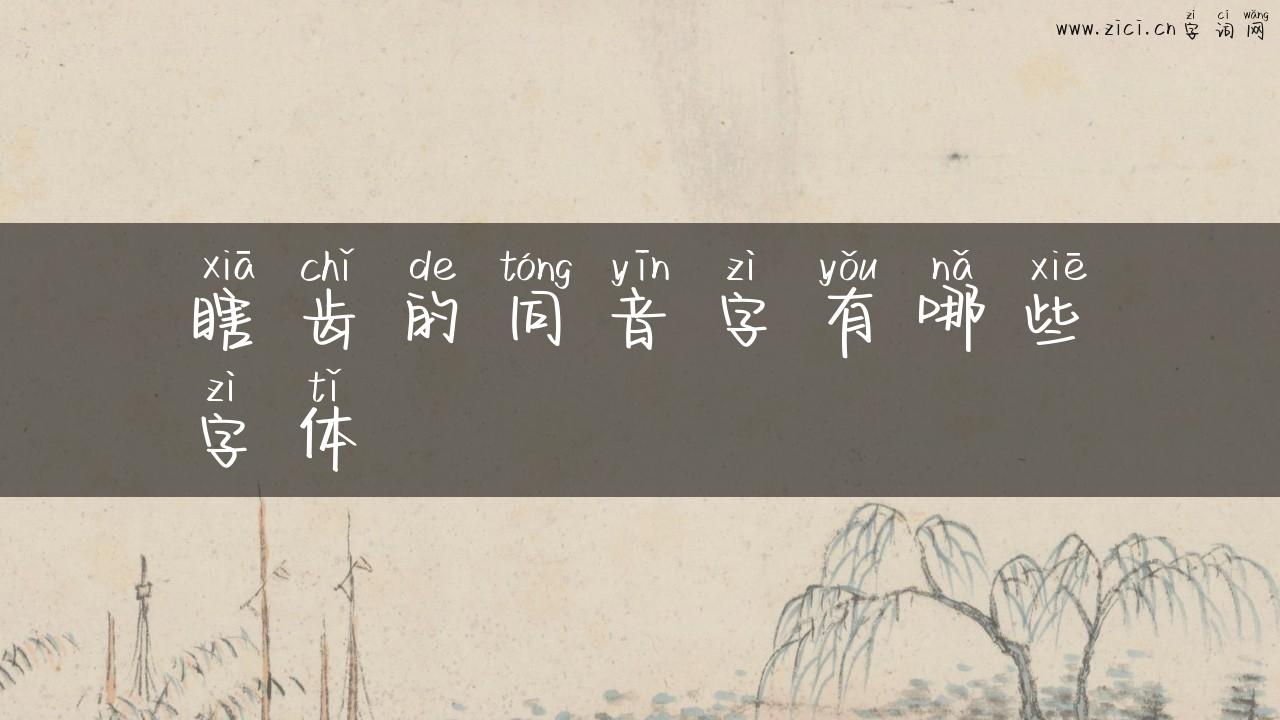 zì cí wǎng
www.zici.cn 字词网
xiā chǐ de tóng yīn zì yǒu nǎ xiē
瞎齿的同音字有哪些
zì tǐ
字体